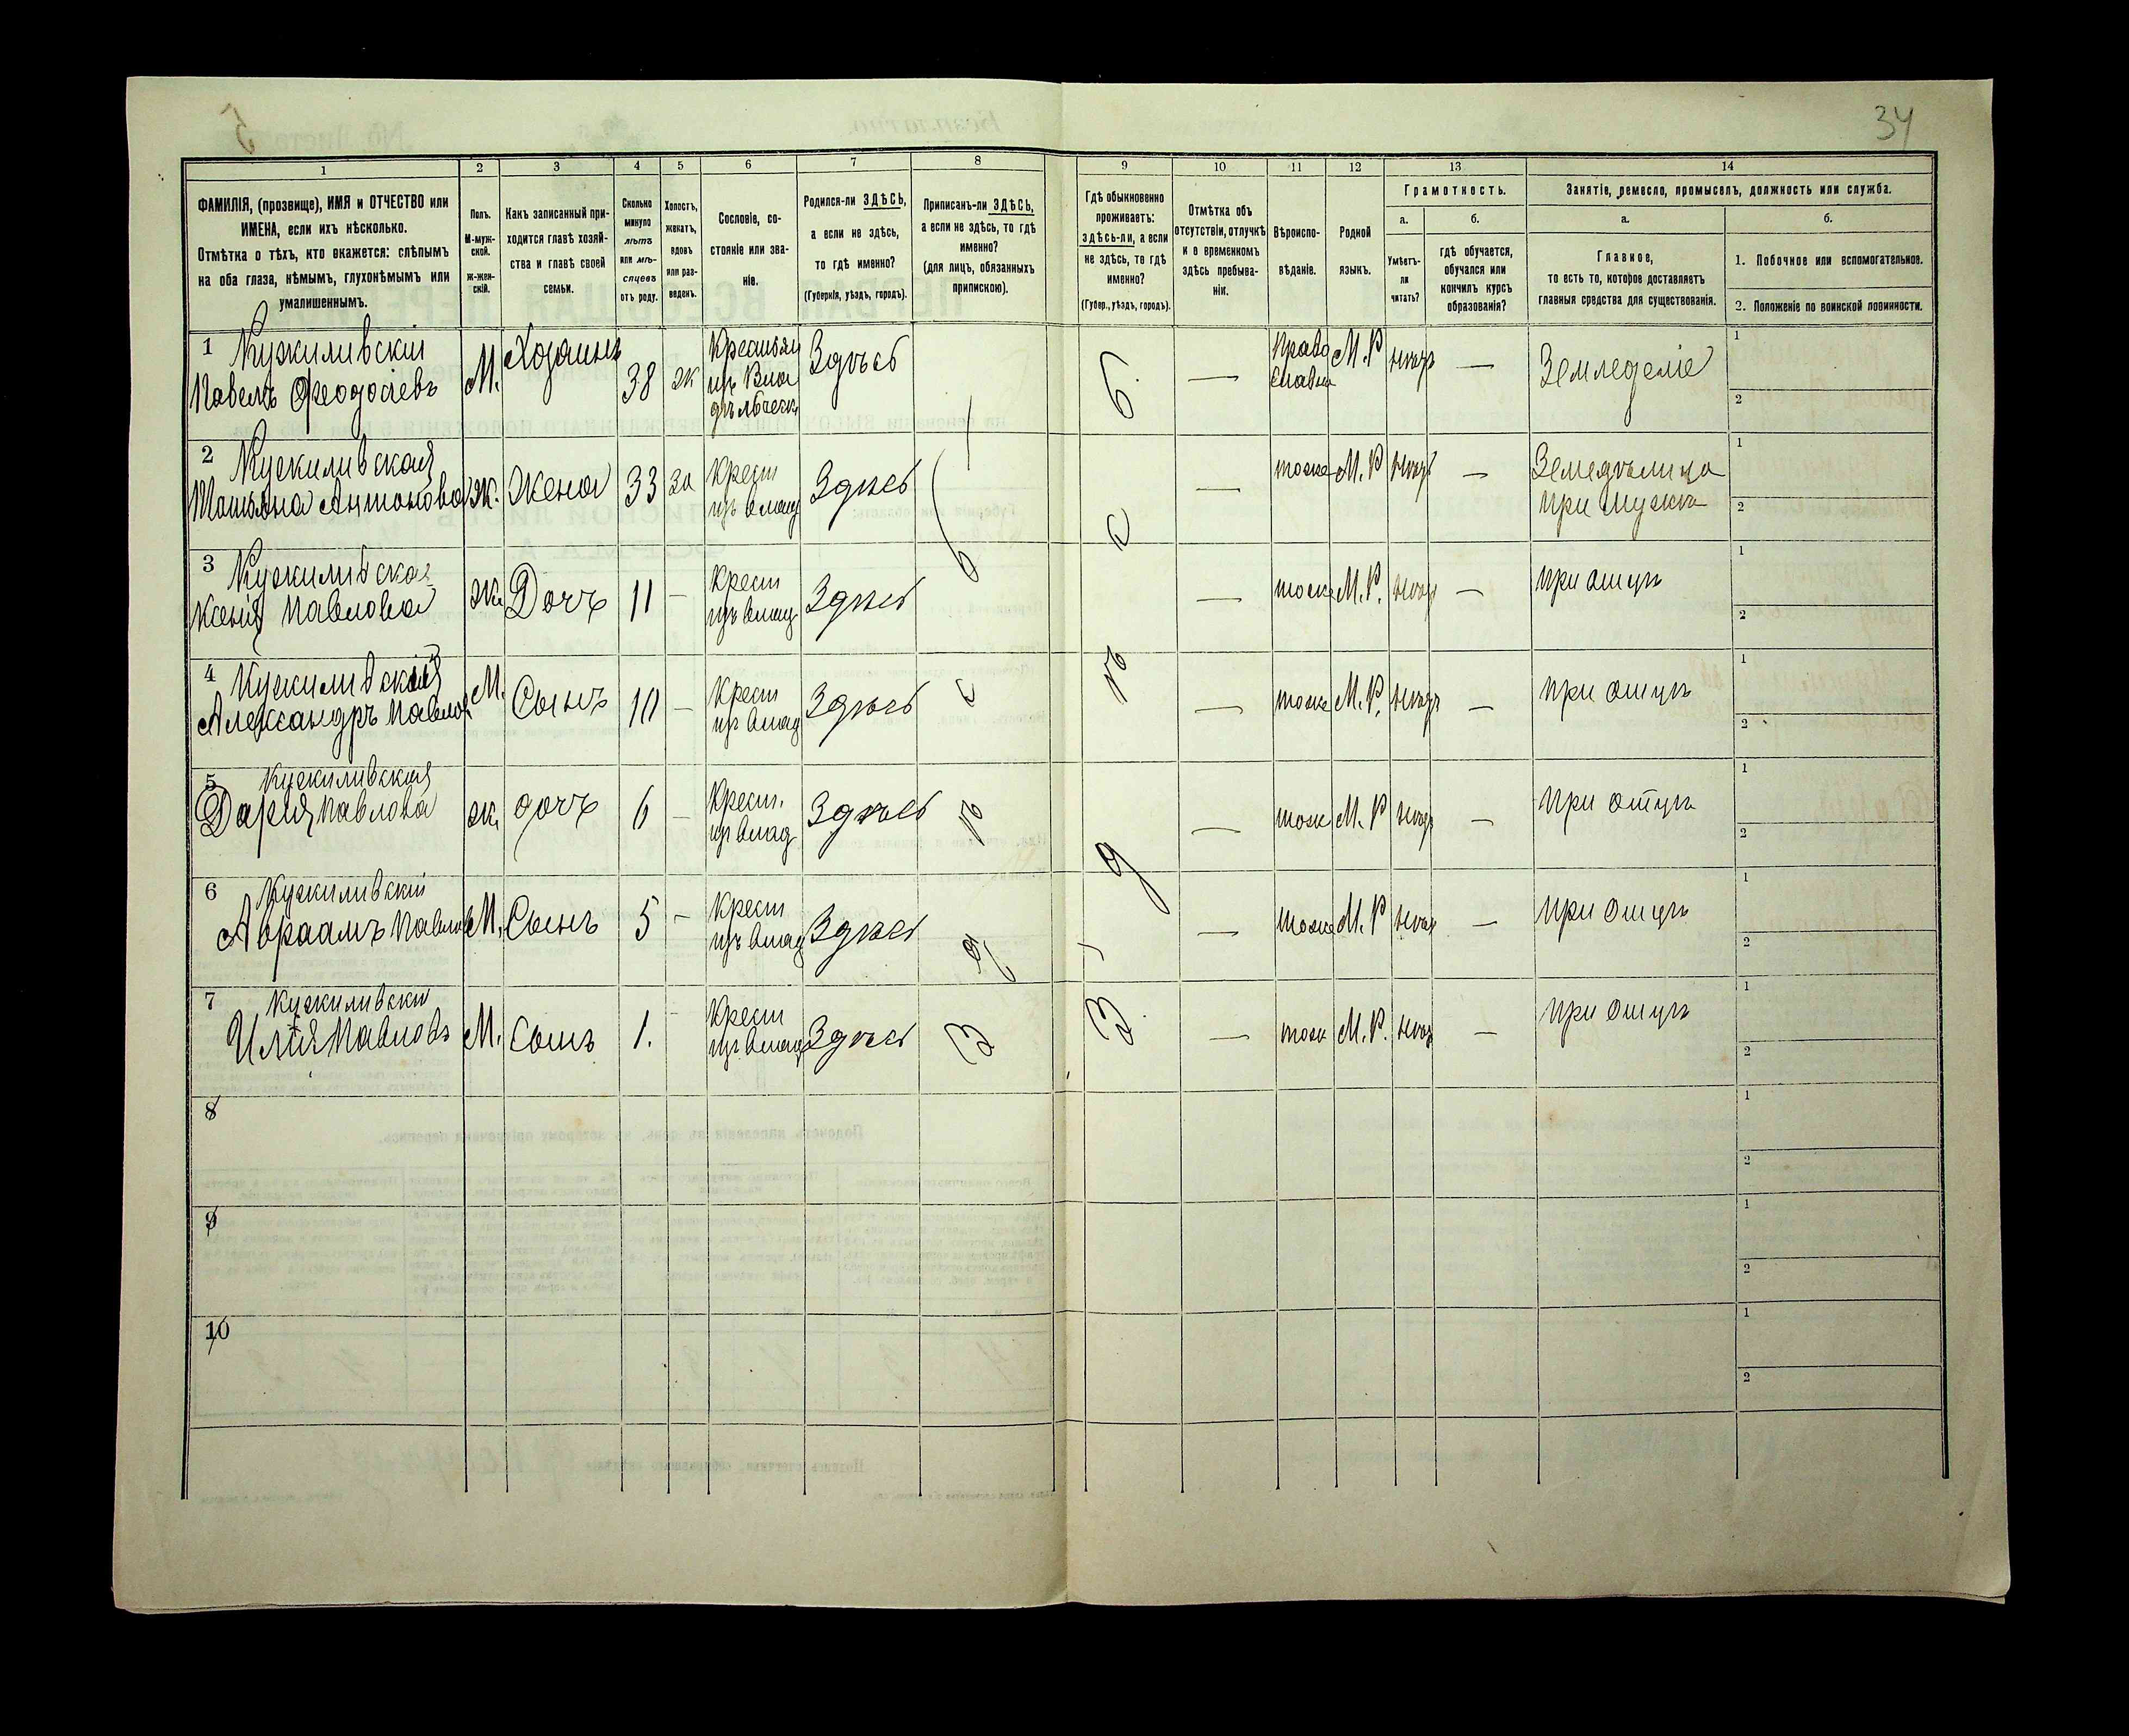 34
1
2
3
4
5
6
7
8
9
10
11
12
13
14
ФАМИЛІЯ, (прозвище), ИМЯ и ОТЧЕСТВО или
ИМЕНА, если ихъ нѣсколько.
Отмѣтка о тѣхъ, кто окажется: слѣпымъ
на оба глаза, нѣмымъ, глухонѣмымъ или
умалишеннымъ.
Полъ.
М-муж-
ской.
Ж-жен-
скій.
Какъ записанный при-
ходится главѣ хозяй-
ства и главѣ своей
семьи.
Сколько
минуло
лѣтъ
или мѣ-
сяцевъ
отъ роду.
Холостъ,
женатъ,
вдовъ
или раз-
веденъ.
Сословіе, со-
стояніе или зва-
ніе.
Родился-ли ЗДѢСЬ,
а если не здѣсь,
то гдѣ именно?
(Губернія, уѣздъ, городъ).
Приписанъ-ли ЗДѢСЬ,
а если не здѣсь, то гдѣ
именно?
(для лицъ, обязанныхъ
припискою).
Гдѣ обыкновенно
проживаетъ:
здѣсь-ли, а если
не здѣсь, то гдѣ
именно?
(Губер., уѣздъ, городъ).
Отмѣтка объ
отсутствіи, отлучкѣ
и о временномъ
здѣсь пребыва-
ніи.
Вѣроиспо-
вѣданіе.
Родной
языкъ.
Грамотность.
а.
Умѣетъ-
ли
читать?
б.
гдѣ обучается,
обучался или
кончилъ курсъ
образованія?
Занятіе, ремесло, промыселъ, должность или служба.
а.
Главное,
то есть то, которое доставляетъ
главныя средства для существованія.
б.
1. Побочное или вспомогательное.
2. Положеніе по воинской повинности.
1 Кужиливскій
Павелъ Феодосіевъ
М.
Хозяинъ
38
ж
Крестьян
изъ Вла
дѣльческ
Здѣсь
Право
Славн
М.Р
Земледеліе
2 Кужиливская
Татьяна Антонова
Ж.
Жена
33
за
Крест
изъ влад
Здѣсь
тоже
М.Р
при мужа
3 Кужиливская
Ксенія Павлова
Ж.
Дочь
11
Крест
изъ влад
Здѣсь
тоже
М.Р.
при отцѣ
4 Кужиливскій
Александръ Павлов
М.
Сынъ
10
Крест
изъ влад
Здѣсь
тоже
М.Р.
при отцѣ
5 Кужиливская
Дарія Павлова
ж.
дочь
6
Крест.
изъ влад
Здѣсь
тоже
М.Р
при отцѣ
6 Кужиливскій
Авраамъ Павлов
М.
Сынъ
5
Крест
изъ влад
Здѣсь
тоже
М.Р
при отцѣ
7 Кужиливски
Илія Павловъ
М.
Сынъ
1.
Крест
изъ влад
Здѣсь
тоже
М.Р.
при отцѣ
8
9
10